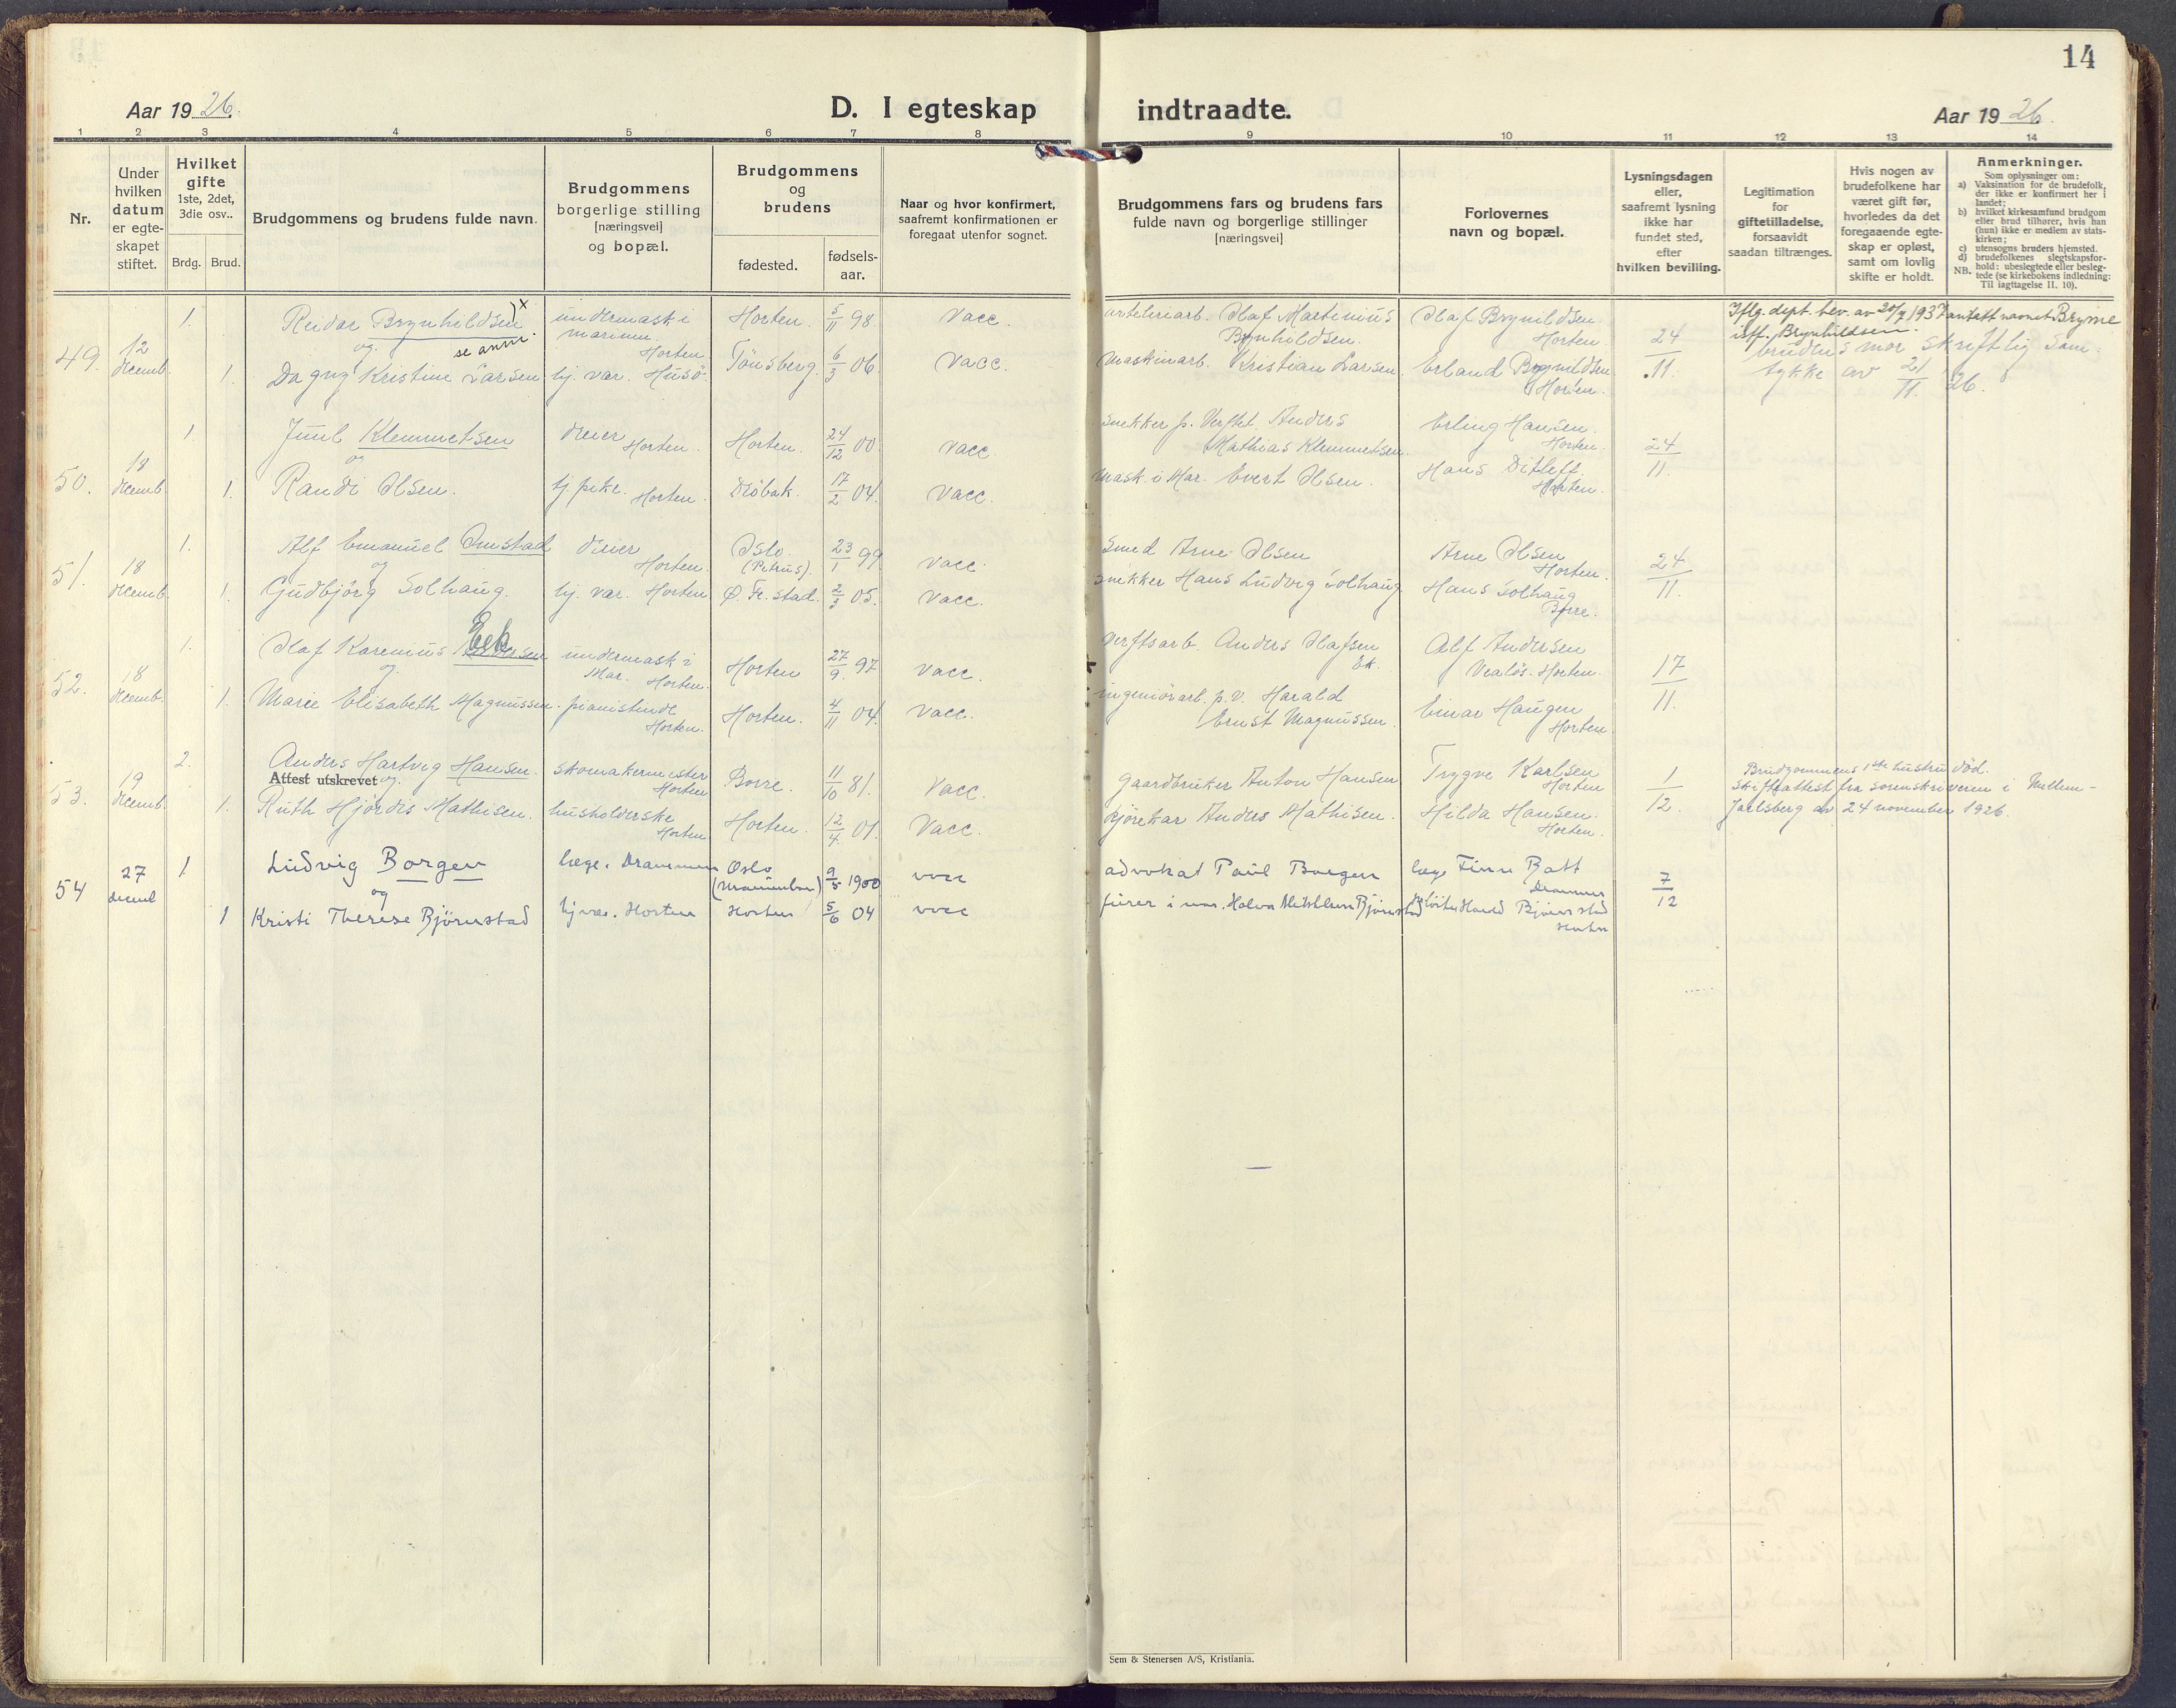 14
Aar 19 26.
D. I egteskap
indtraadte.
Aar 19 26.
1 2 3 4 5 6 7 8 9 10 11 12 13 14
Nr.
Under hvilken datum er egte-skapet stiftet.
Hvilket gifte 1ste, 2det, 3die osv..
Brdg. Brud.
Brudgommens og brudens fulde navn.
Brudgommens borgerlige stilling [næringsvei] og bopæl.
Brudgommens og brudens
fødested. fødsels-aar.
Naar og hvor konfirmert, saafremt konfirmationen er foregaat utenfor sognet.
Brudgommens fars og brudens fars fulde navn og borgerlige stillinger [næringsvei]
Forlovernes navn og bopæl.
Lysningsdagen eller, saafremt lysning ikke har fundet sted, efter hvilken bevilling.
Legitimation for giftetilladelse, forsaavidt saadan tiltrænges.
Hvis nogen av brudefolkene har været gift før, hvorledes da det foregaaende egte-skap er opløst, samt om lovlig skifte er holdt.
Anmerkninger.
Som oplysninger om:
a) Vaksination for de brudefolk, der ikke er konfirmert her i landet;
b) hvilket kirkesamfund brudgom eller brud tilhører, hvis han (hun) ikke er medlem av stats-kirken;
c) utensogns bruders hjemsted.
d) brudefolkenes slegtskapsfor-hold: ubeslegtede eller besleg-tede (se kirkebokens indledning:
NB. Til iagttagelse II. 10).
49. 12 decemb.
1. Reidar Brynhildsen )x undermask i marinen. Horten. Horten. 5/11 98. Vacc. Olaf Martinius Brynhildsen. Olaf Brynildsen. Horten. 24/11.
og. se anm.
1. Dagny Kristine Larsen hj. vær. Husö. Tönsberg. 6/3 06. Vacc. maskinarb. Kristian Larsen. Erland Brynildsen Horten.
Iflg. dept. bev. av 20/7 1937 antatt navnet Bryme
istf. Brynhildsen.
brudens mor skriftlig sam-
tykke av 21/11 26.
50. 18 decemb.
1. Juul Klemmetsen dreier Horten. Horten. 24/12 00. Vacc. snekker p. Verftet. Anders Mathias Klemmetsen. Erling Hansen. Horten. 24/11.
og
1. Randi Olsen. tj. pike. Horten. Dröbak. 17/2 04. Vacc. mask. i Mar. Evert Olsen. Hans Ditleff. Horten.
51. 18 decemb.
1. Alf Emanuel Omstad dreier Horten. Oslo. (Petrus). 23/1 99. Vacc. Smed Arne Olsen Arne Olsen Horten. 24/11.
og
1. Gudbjörg Solhaug. hj. vær. Horten Ø. Fr. stad. 2/3 05. Vacc. snekker Hans Ludvig Solhaug Hans Solhaug Borre.
52. 18 decemb.
1. Olaf Karenius Eek undermask i Mar. Horten. Horten 27/9. 97 Vacc. Verftsarb. Anders Olafsen Ek. Alf Andersen Vealös. Horten. 17/11.
og.
1. Marie Elisabeth Magnussen. pianistinde Horten. Horten. 4/11 04. Vacc. ingeniörarb. p.V. Harald Ernst Magnussen. Einar Haugen Horten.
53. 19 decemb.
2. Anders Hartvig Hansen. skomakermester Horten Borre. 11/10 81. Vacc. Gaardbruker Anton Hansen Trygve Karlsen Horten 1/12.
Attest utskrevet og.
1. Ruth Hjördis Mathisen. husholderske Horten Horten. 12/4 01. Vacc. Kjörekar Anders Mathisen. Hilda Hansen. Horten.
Brudgommens 1ste hustru död.
Skifteattest fra sorenskriveren i Mellem-
Jarlsberg av 24 november 1926.
54 27 deceml
1 Ludvig Borgen læge. Drammen Oslo 9/5 1900 vacc advokat Paul Borgen læge Finn Batt Drammen 7/12
og
1 Kristi Therese Björnstad hj vær. Horten Horten 5/6 04 vacc
Sem & Stenersen A/S, Kristiania.